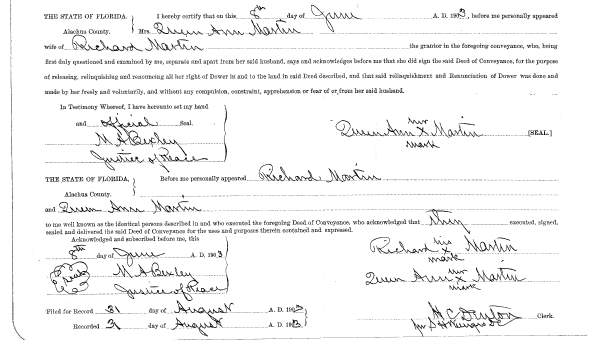 THE STATE OF FLORIDA, I hereby certify that on this 8th day of June A. D. 1903, before me personally appeared
Alachua County. Mrs. Queen Ann Martin
wife of Richard Martin the grantor in the foregoing conveyance, who, being
first duly questioned and examined by me, separate and apart from her said husband, says and acknowledges before me that she did sign the said Deed of Conveyance, for the purpose
of releasing, relinquishing and renouncing all her right of Dower in and to the land in said Deed described, and that said relinquishment and Renunciation of Dower was done and
made by her freely and voluntarily, and without any compulsion, constraint, apprehension or fear of or from her said husband.
In Testimony Whereof, I have hereunto set my hand
and official
M. A. Bexley
Justice of Peace
her
Queen Ann X Martin [SEAL.]
mark
THE STATE OF FLORIDA, Before me personally appeared Richard Martin
Alachua County.
and Queen Ann Martin
to me well known as the identical persons described in and who executed the foregoing Deed of Conveyance, who acknowledged that they executed, signed,
sealed and delivered the said Deed of Conveyance for the uses and purposes therein contained and expressed.
Acknowledged and subscribed before me, this
8th day of June A. D. 1903
M. A. Bexley
Justice of Peace
his
Richard X Martin
mark
her
Queen Ann X Martin
mark
Filed for Record 31 day of August A. D. 1903
Recorded 31 day of August A. D. 1903
Clerk.